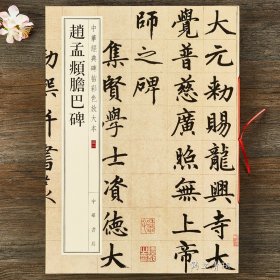 大元勑賜龍興寺大
覺普慈廣照無上帝
師之碑
集賢學士資德大
中華經典碑帖彩色放大本
趙孟頫膽巴碑
中華書局